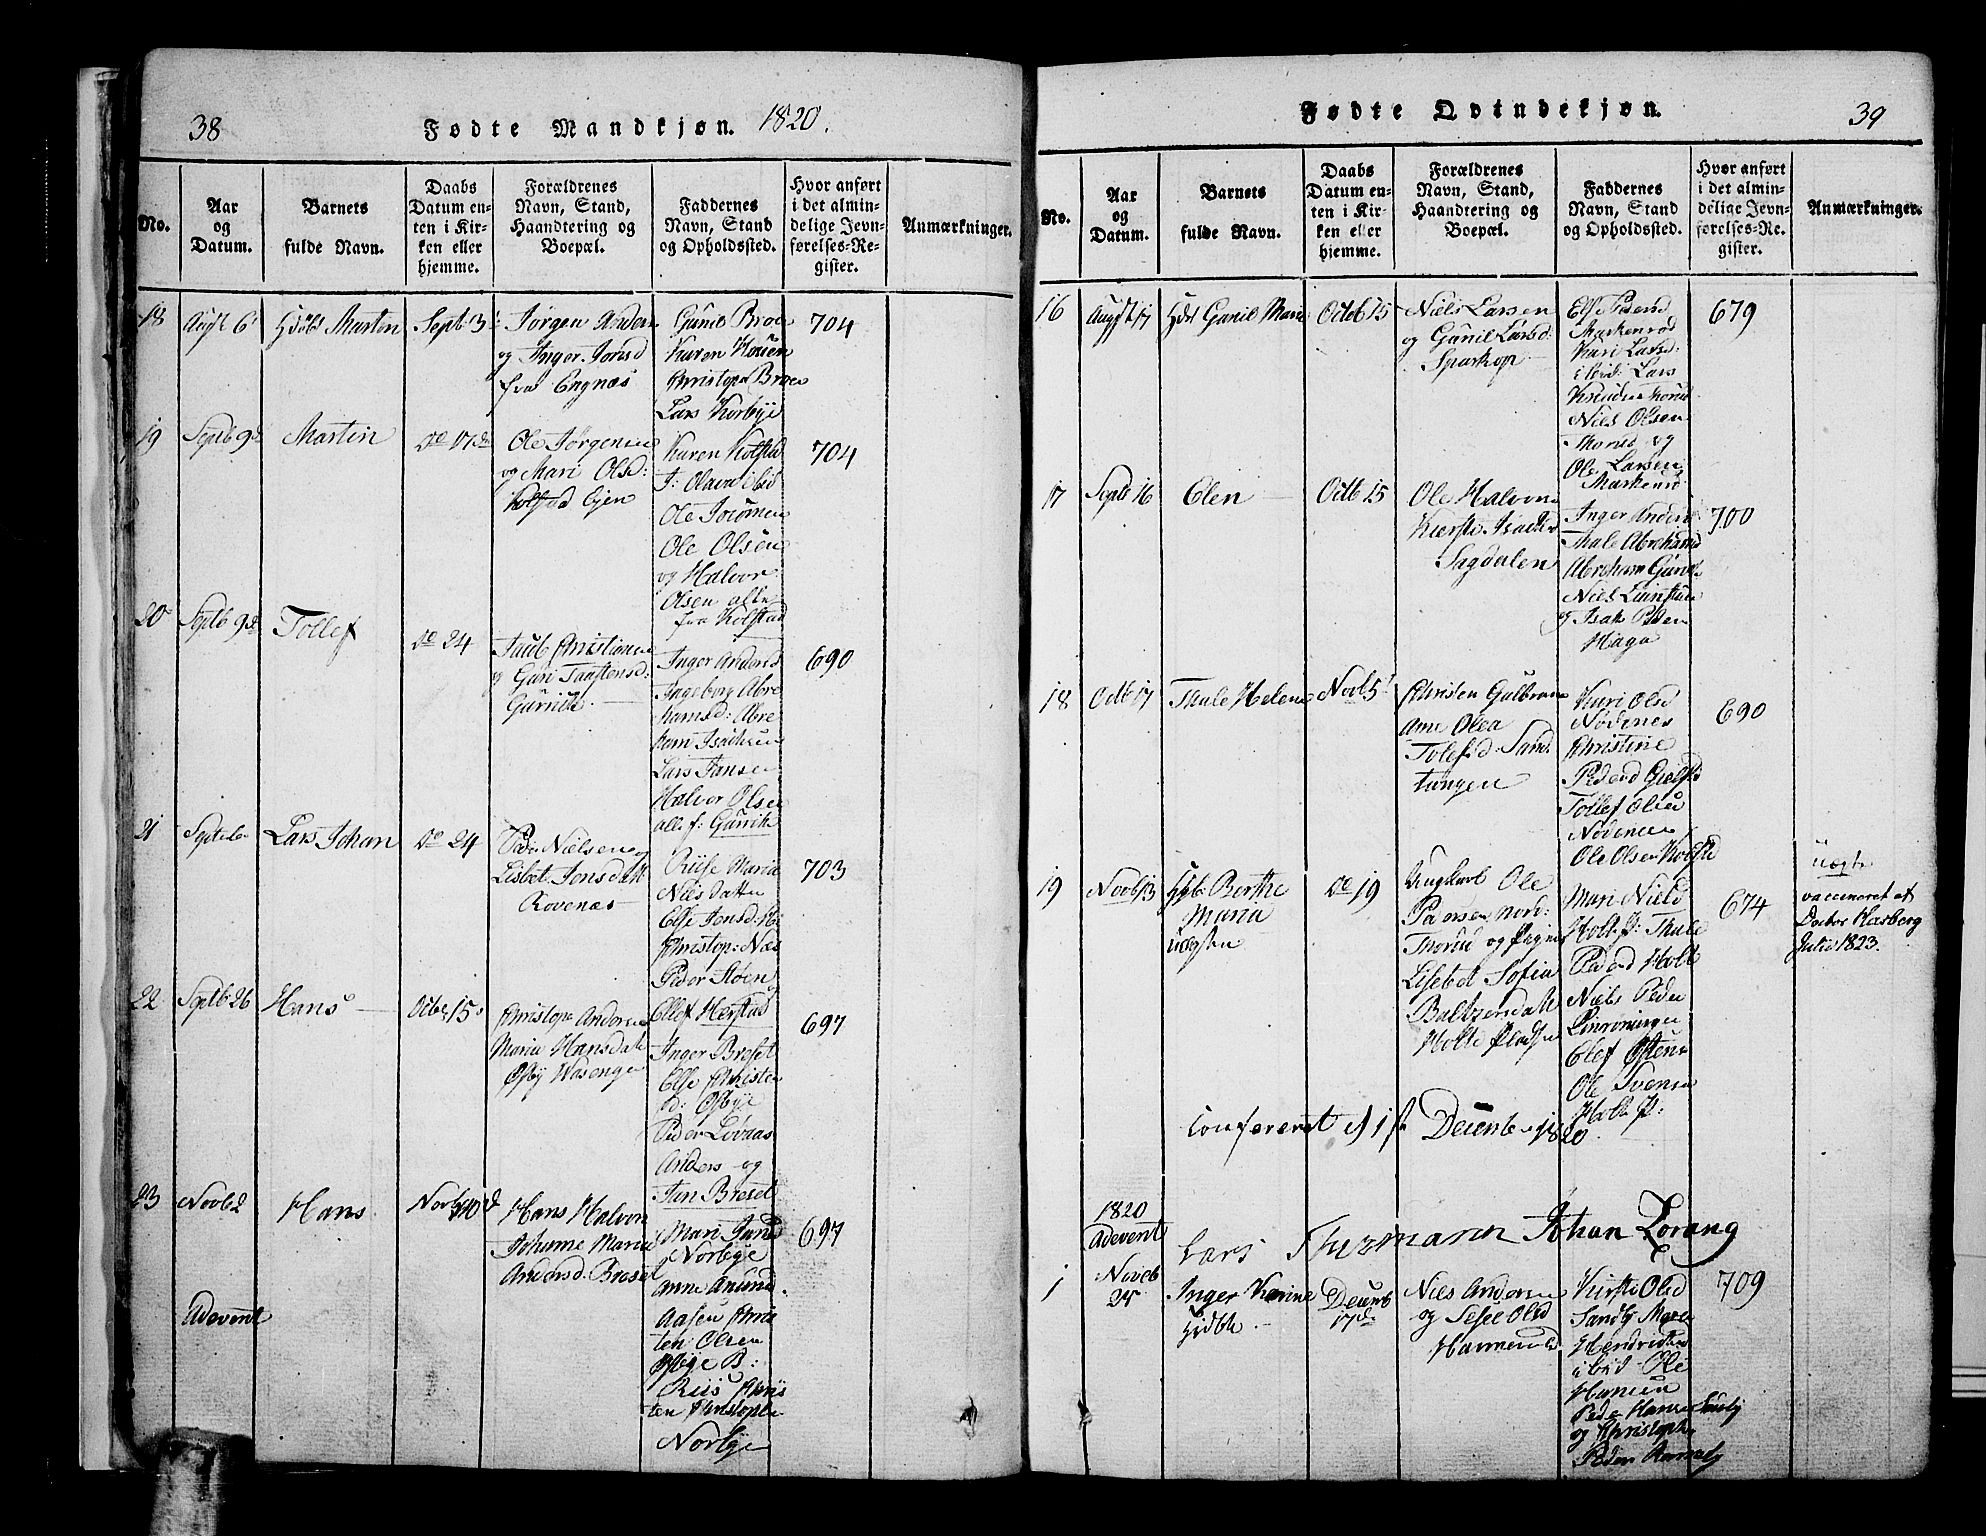 38
Fødte Mandkjøn. 1820.
No.
Aar og Datum.
Barnets fulde Navn.
Daabs Datum enten i Kirken eller hjemme.
Forældrenes Navn, Stand, Haandtering og Boepæl.
Faddernes Navn, Stand og Opholdssted.
Hvor anført i det almindelige Jevnførelses-Register.
Anmærkninger.
18
Augst 6
Hdøbt Martin
Septb 3
Jørgen Anders
og Inger Jonsd
fra Engnæs
Gunil Broe
Karen Houen
Christopr Broe
Lars Korbye
704
19
Septb 9d
Martin
do 17de
Ole Jørgensen
og Mari Olsd:
Kolstad Ejen
Karen Kolstad
Ole Olsen
og Halvor
Olsen alle
fra Kolstad
704
20
Septb 9de
Tollef
do 24
Christians
og Guri Torstensd:
Gurvik
Inger Anders
Ingeborg Abra
hamsd: Abra
ham Isachsen
Lars Jansen
Halvor Olsen
alle f: Gurvik
690
21
Septb 6
Lars Johan
do 24
Peder Nielsen og
Lisbet Jonsdatt
Rovenæs
Maria
Niels datter
Else Jonsd:
Christop: Næs
Peder Stoen
Ellef Herstad
703
22
Septb 26
Hans
Octb 15
Christopr Anders
Marie Hansdatt
Østby Wasengen
Inger Breset
Else Christen
d: Østbye
Peder Lövaas
Anders og
Jan Breset
697
23
Novb 2
Hans
Novb 10d
Hans Halvor
Johanne Marie
Andersd: Breset
Mari Jansd
Norbye
Anne Amund
Aasen Chris
ten Olsen
Østbye B:
Riis Chris
ten Christophr
Norbye
697
Adevent
Fødte Qvindekjøn.
39
No.
Aar og Datum.
Barnets fulde Navn.
Daabs Datum enten i Kirken eller hjemme.
Forældrenes Navn, Stand, Haandtering og Boepæl.
Faddernes Navn, Stand og Opholdssted.
Hvor anført i det almindelige Jevnførelses-Register.
Anmærkninger.
16
Augst 17
Hdøt Gunil Marie
Octob 15
Niels Larsen
og Gunil Larsd:
Sparkop
Else Pedersd
Markerud
Kari Larsd:
ibid: Lars
Knudsen
Niels Olsen
Thorud og
Ole Larsen
Markerud
679
17
Septb 16
Elen
Octb 15
Ole Halvors
Kiersti Isachsd
Sagdalen
Inger Andersd
Thale Abrahamsd
Abraham Gurvik
Niels
og Isak Peders
Haga
700
18
Octb 17
Thale Helene
Novb 5
Christen Gulbran
Ane Olea
Tolefsd: Sand
tungen
Kari Olsd
Nødenes
Christine
Pedersd
Tollef Olsen
Nødenes
Ole Olsen Kolsta
690
19
Novb 13
Hdb Berthe
Maria
uægte
do 19
Ungkarl Ole
Paersen nord:
Thorud og Pigen
Lisebet Sofia
Baltzersdatt
Holte Pladsen
Mari Nielsd
Holt p: Thale
Pedersd Holt
Niels Peder
Elef Østens
Ole Svensen
Holt P:
674
uægte
vaccineret af
Doctor Harberg
Julio 1823.
Confereret d 1st Decemb 1820
1820
Adevent
Lars Thurmann Johan Lorang
1
Noveb
25
Inger Karine
Hdbt
Decemb
17de
Niels Anders
og Sesel Olsd
Hammerud
Kirsti Olsd
Sandby Maren
Hendrichsd
ibid Ole
Hansen
Peder Hansen
og Christophr
Peder
709